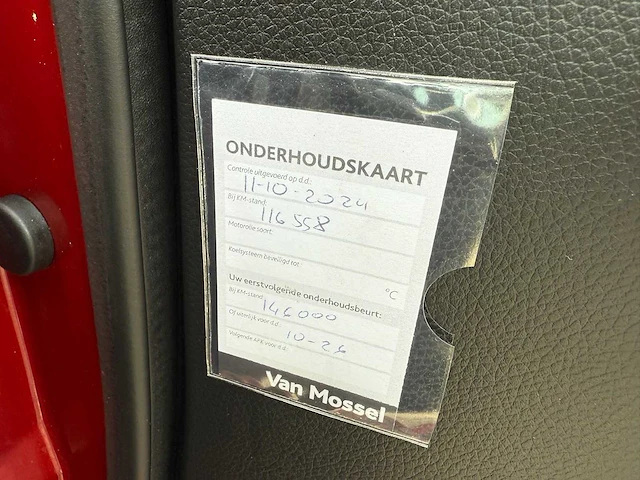 ONDERHOUDSKAART
Controle uitgevoerd op d.d.:
11-10-2024
Bij KM-stand:
116 558
Motorolie soort:
Koelsysteem beveiligd tot:
°C
Uw eerstvolgende onderhoudsbeurt:
Bij KM-stand:
146000
Of uiterlijk voor d.d.:
10-26
Volgende APK voor d.d.:
Van Mossel